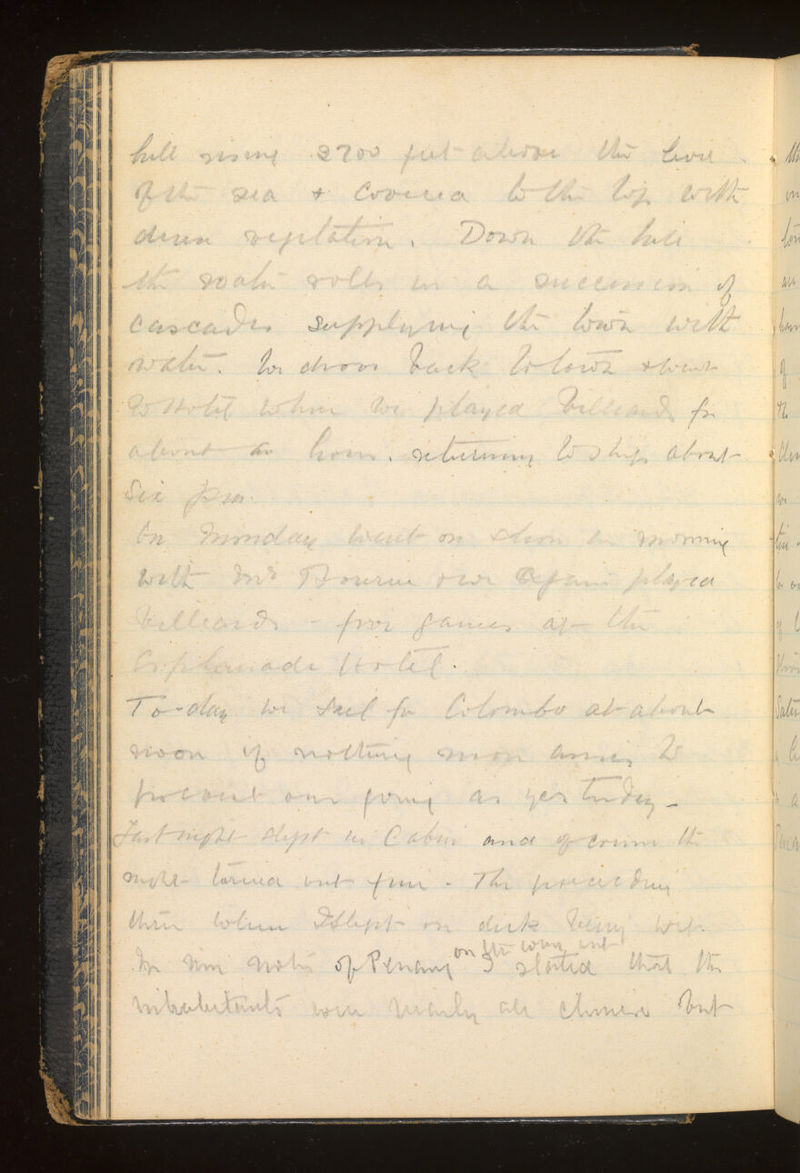 hill rising 2700 feet above the level
of the sea & covered to the top with
dense vegetation. Down the hill
the water rolls in a succession of
cascades supplying the town with
water. We drove back to town & went
to Hotel where we played billiards for
about an hour. returning to ship about
six p.m.
On Monday went on shore in morning
with Mr Bourne & we again played
billiards - four games at the
Esplanade Hotel.
To-day we sail for Colombo at about
noon if nothing more arises to
prevent our going as yesterday -
Last night slept in Cabin and of course the
night turned out fine. The preceding
three when I slept on deck being wet.
In my notes of Penang on the way out I stated that the
inhabitants were nearly all chinese but